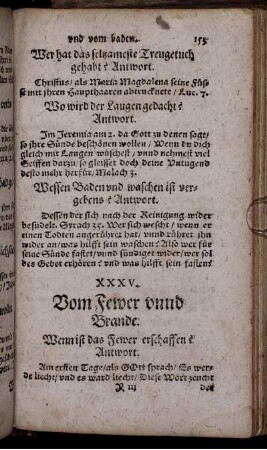 vnd vom baden. 155
Wer hat das seltzameste Treugetuch
gehabt? Antwort.
Christus / als Maria Magdalena seine Füs-
se mit jhren Haupthaaren abtrucknete / Luc. 7.
Wo wird der Laugen gedacht?
Antwort.
Im Jeremia am 2. da Gott zu denen sagt /
so jhre Sünde beschönen wollen / Wenn du dich
gleich mit Laugen wüschest / vnnd nehmest viel
Seiffen darzu / so gleisset doch deine Vntugend
desto mehr herfür / Malach 3.
Wessen Baden vnd waschen ist ver-
gebens? Antwort.
Dessen der sich nach der Reinigung wider
besudelt. Syrach 34. Wer sich wescht / wenn er
einen Todten angerühret hat / vnnd rühret jhn
wider an / was hilfft sein waschen? Also wer für
seine Sünde fastet / vnnd sündiget wider / wer sol
des Gebet erhören? vnd was hilfft sein fasten?
XXXV.
Vom Fewer vnnd
Brande.
Wenn ist das Fewer erschaffen?
Antwort.
Am ersten Tage / als GOtt sprach / Es wer-
de liecht / vnd es ward liecht / Diese Wort zeucht
R iij der